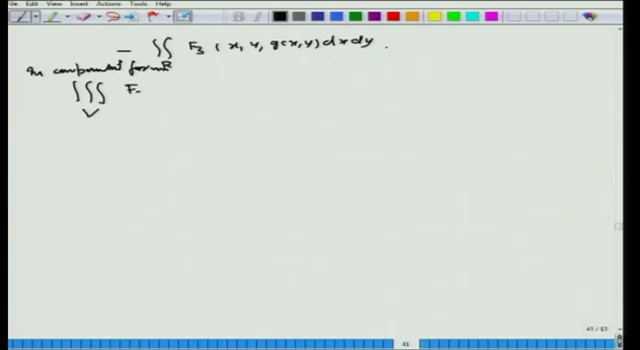 File Edit View Insert Actions Tools Help
− ∬_R F₃ (x, y, g(x,y)) dx dy.
In component form
∭_V F
41 / 61
41